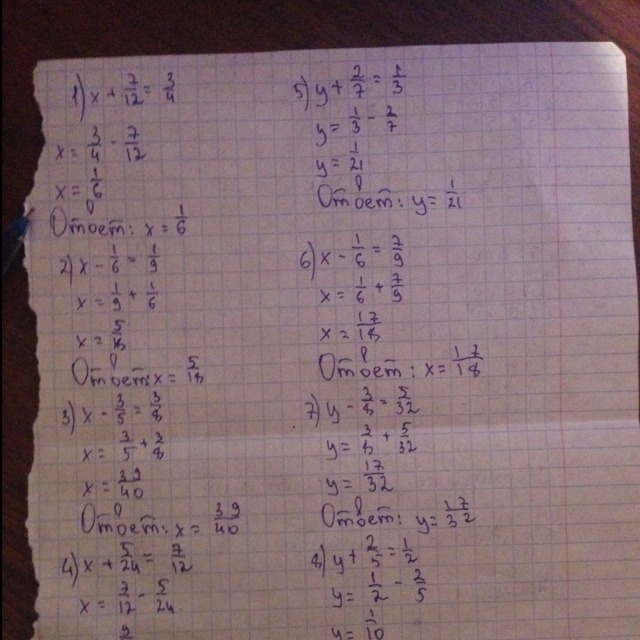 1) x + 7/12 = 3/4
x = 3/4 - 7/12
x = 1/6
Ответ: x = 1/6
2) x - 1/6 = 1/9
x = 1/9 + 1/6
x = 5/18
Ответ x = 5/18
3) x - 3/5 = 3/8
x = 3/5 + 3/8
x = 39/40
Ответ: x = 39/40
4) x + 5/24 = 7/12
x = 7/12 - 5/24
5) y + 2/7 = 1/3
y = 1/3 - 2/7
y = 1/21
Ответ: y = 1/21
6) x - 1/6 = 7/9
x = 1/6 + 7/9
x = 17/18
Ответ: x = 17/18
7) y - 3/8 = 5/32
y = 3/8 + 5/32
y = 17/32
Ответ: y = 17/32
8) y + 2/5 = 1/2
y = 1/2 - 2/5
y = 1/10